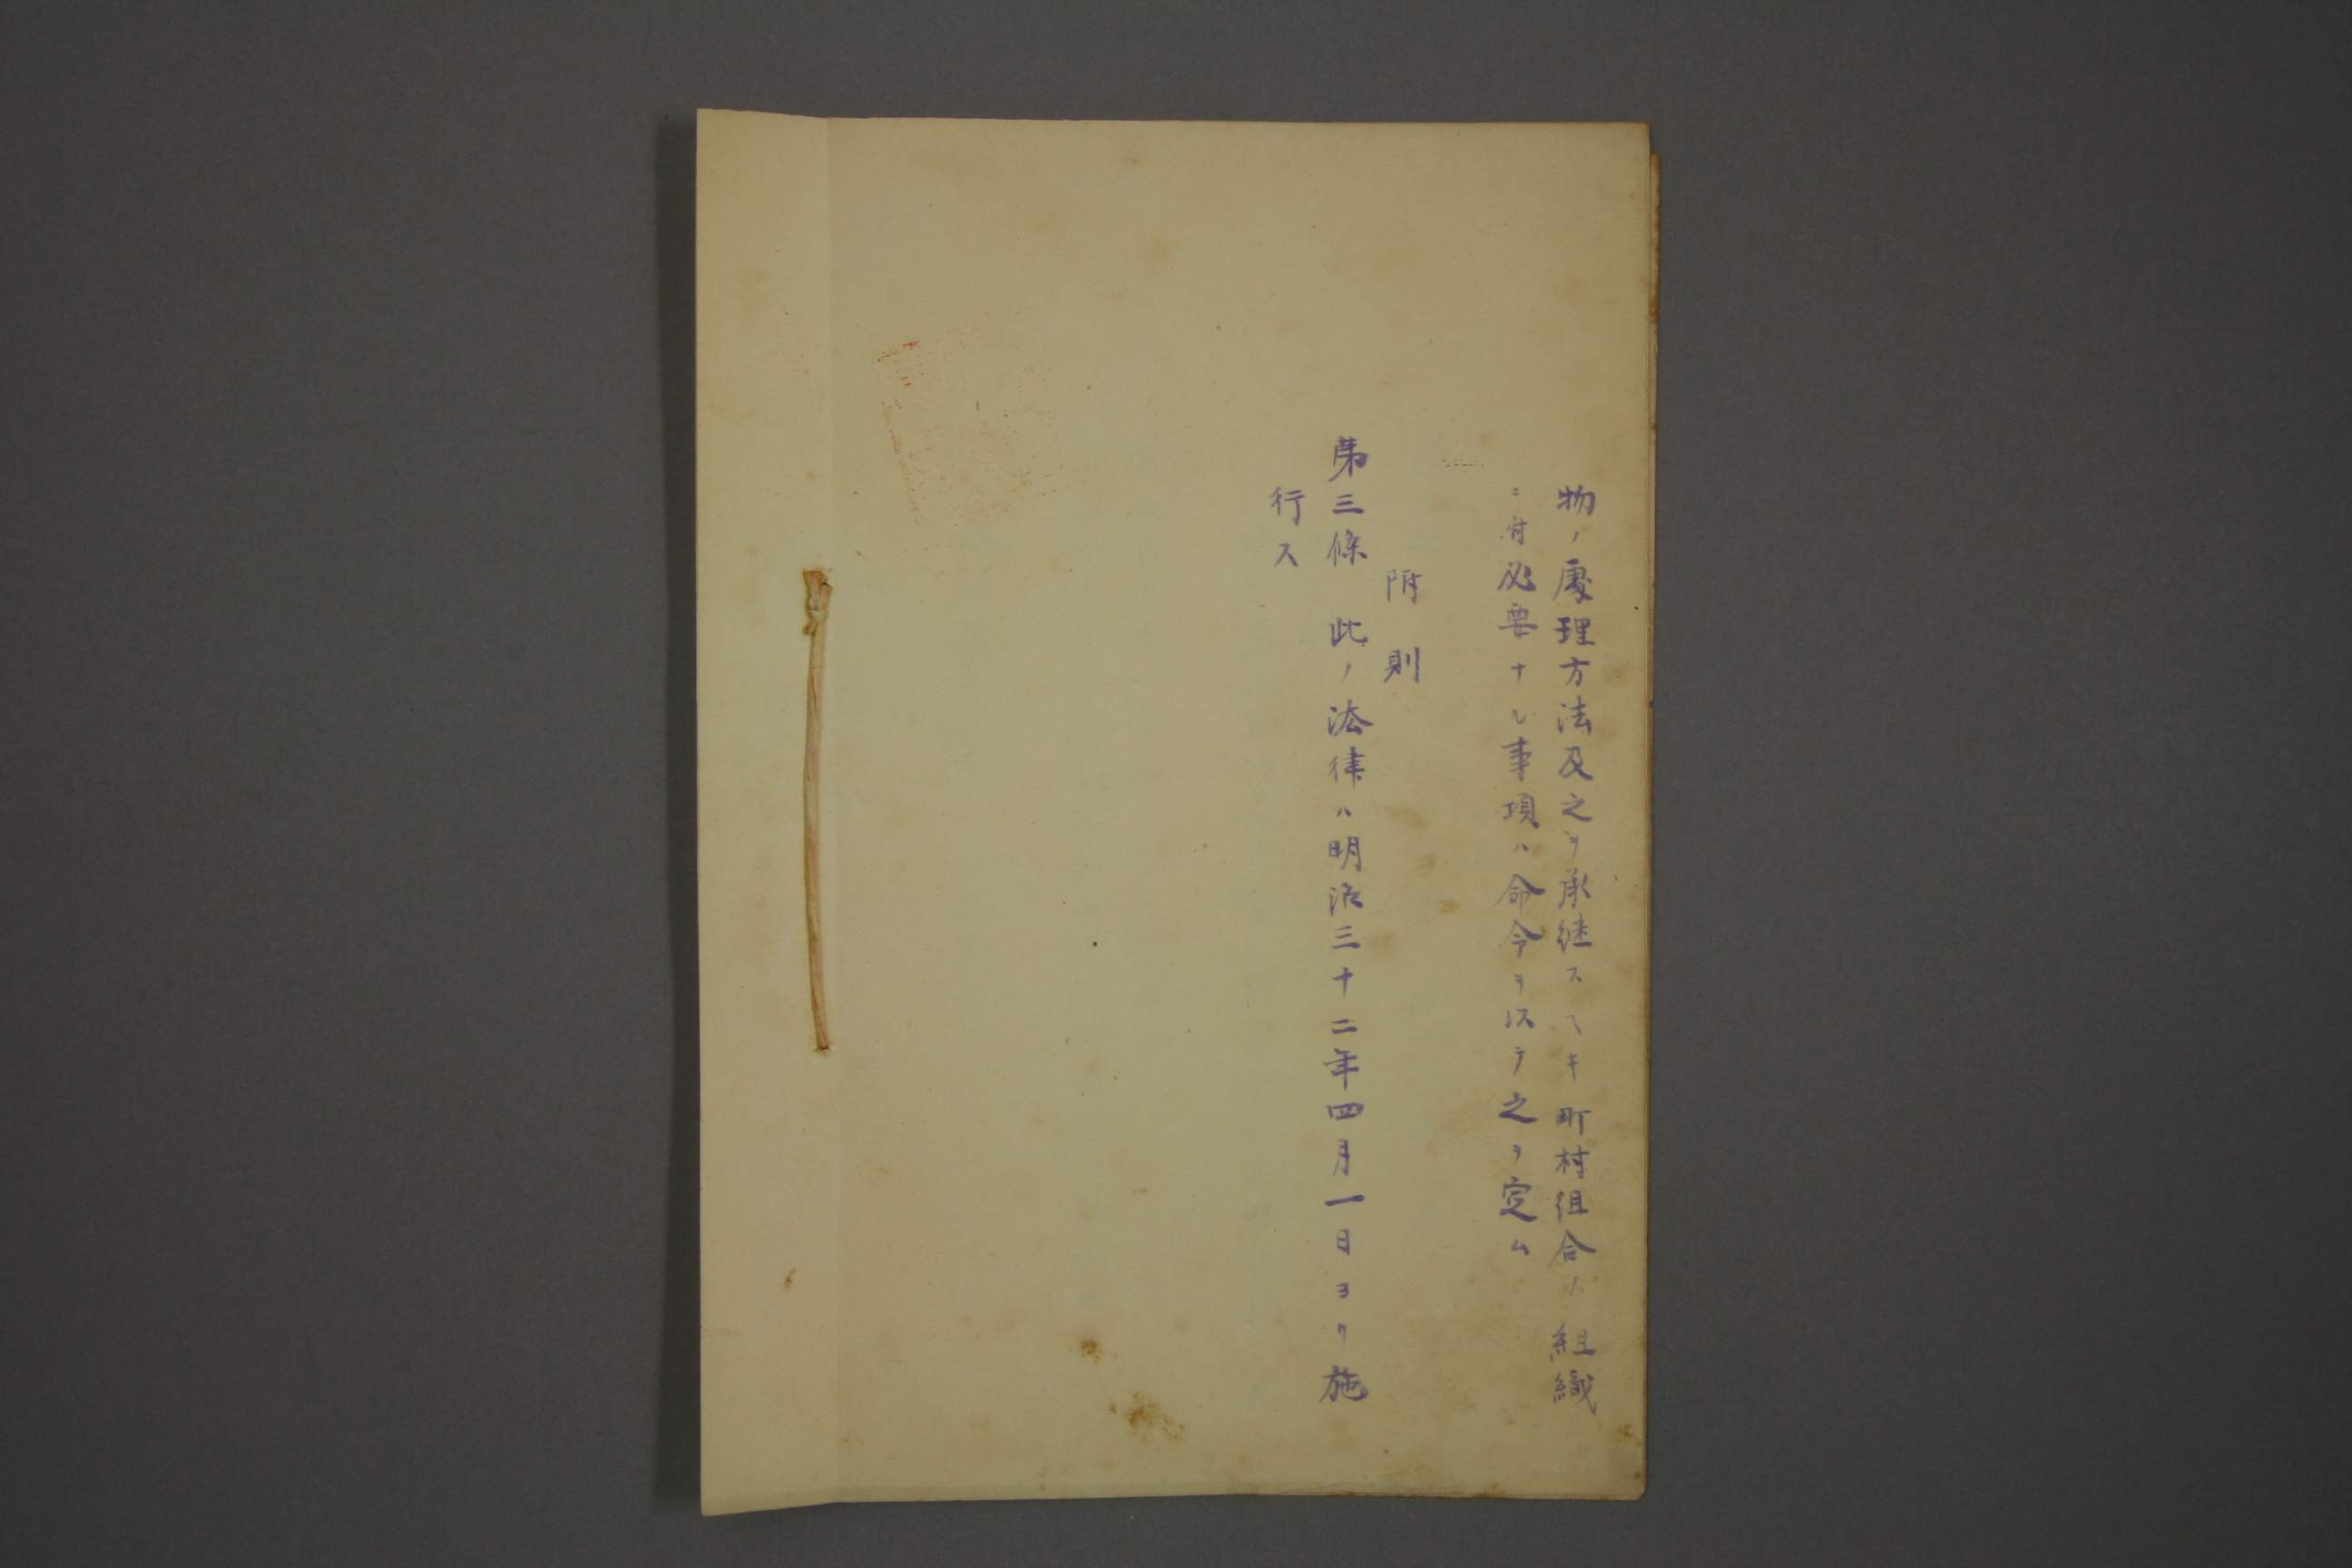 物ノ處理方法及之ヲ承継スヘキ町村組合ノ組織
ニ付必要ナル事項ハ命令ヲ以テ之ヲ定ム
附則
第三條 此ノ法律ハ明治三十二年四月一日ヨリ施
行ス